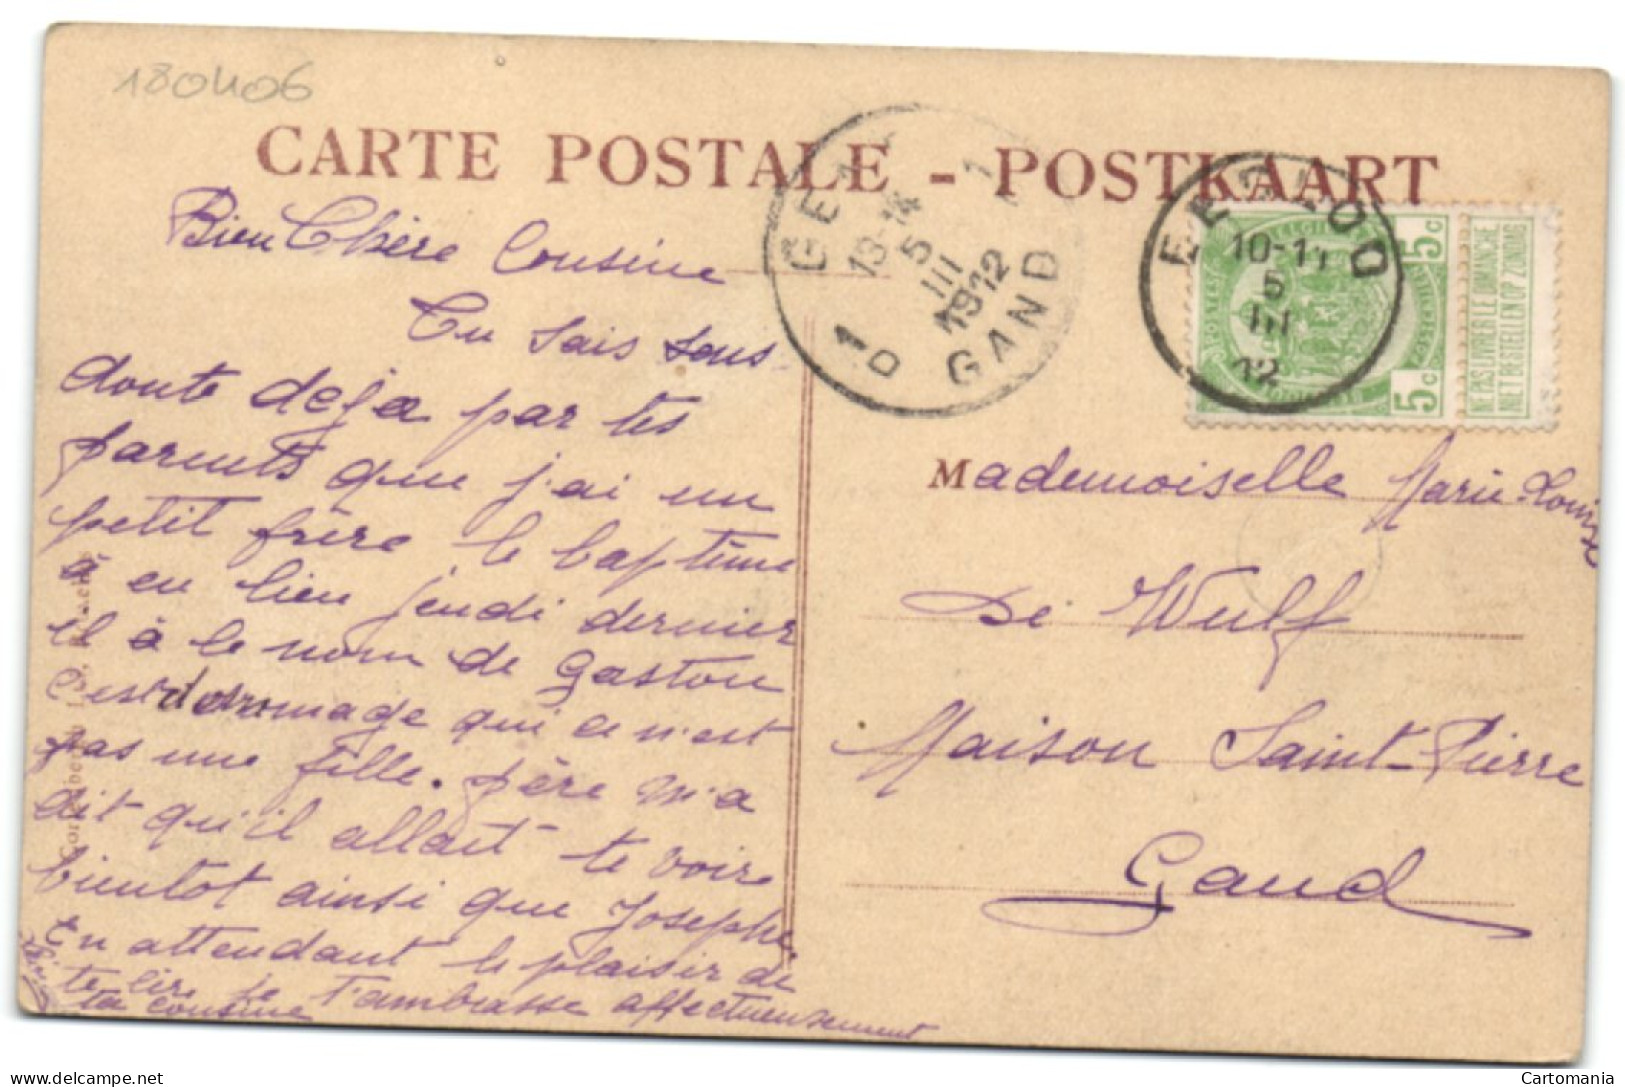 180406
CARTE POSTALE - POSTKAART
Bien Chère Cousine
Tu sais sans
doute deja par tes
parents que j'ai un
petit frère le baptême
à eu lieu jeudi dernier
il à le nom de Gaston
C'est dommage qui ce n'est
pas une fille. père m'a
dit qu'il allait te voir
bientot ainsi que Joseph
En attendant le plaisir de
te lire je t'ambrasse affectueusement
ta cousine
GENT
13-14
5
III
1912
1D GAND
10-11
5
III
12
BELGIE
5c
5c
NE PAS LIVRER LE DIMANCHE
NIET BESTELLEN OP ZONDAG
Mademoiselle Marie-Louise
De Wulf
Maison Saint-Pierre
Gand
www.delcampe.net
Cartomania